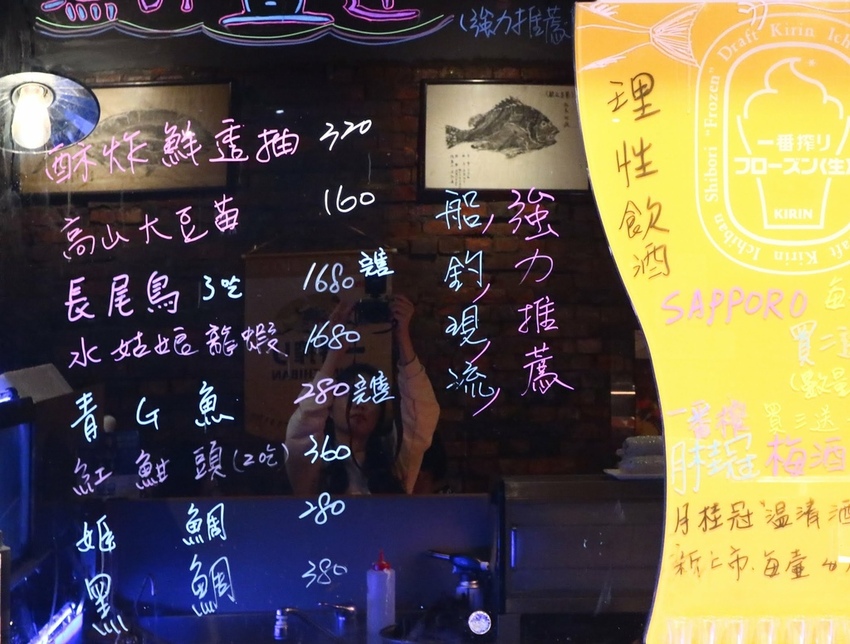 (強力推薦)
酥炸鮮透抽 320
高山大豆苗 160
長尾鳥 3吃 1680 完售
水姑娘龍蝦 1680
青G魚 280 完售
紅魽頭(2吃) 360
姬鯛 280
黑鯛 380
強力推薦
船釣現流
理性飲酒
Draft Kirin Ichiban Shibori "Frozen"
一番搾り
フローズン(生)
KIRIN
SAPPORO 每
買二
一番榨 買三送
月桂冠 梅酒
月桂冠溫清酒
新上市.每壺